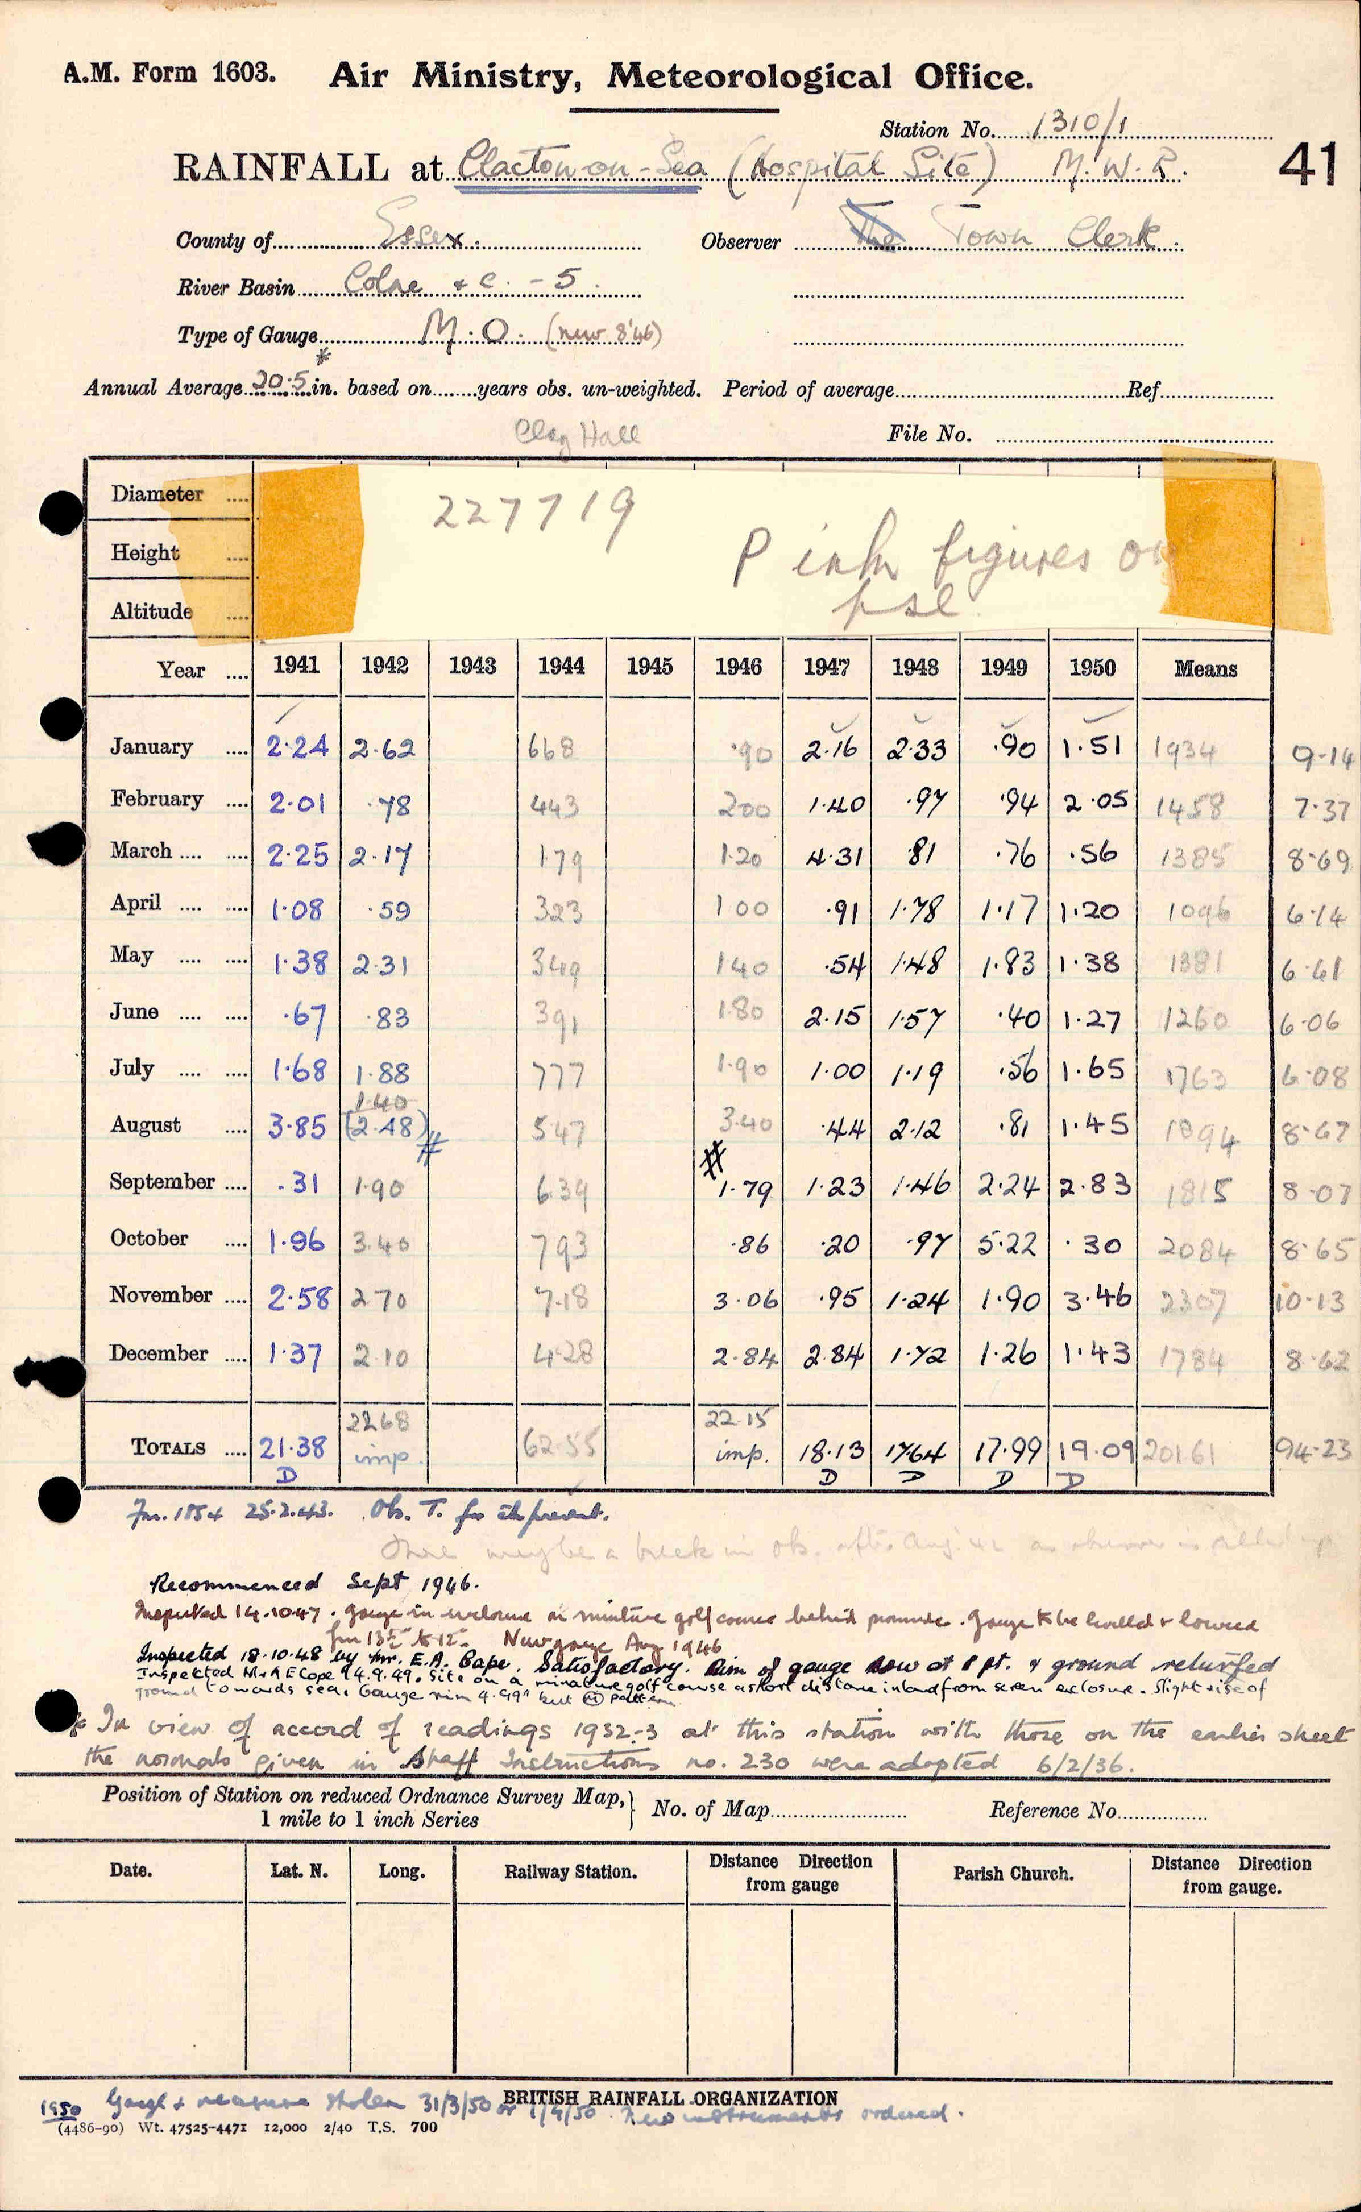 A.M. Form 1603. Air Ministry, Meteorological Office.
Station No. 1310/1
RAINFALL at Clacton-on-Sea (Hospital Site) M.W.R. 41
County of Essex. Observer The Town Clerk.
River Basin Colne & c. - 5.
Type of Gauge M.O. (new 8'46)
*
Annual Average 20.5 in. based on years obs. un-weighted. Period of average Ref.
Clay Hall File No.
Diameter
227719
Height P ink figures on
Altitude
Year 1941 1942 1943 1944 1945 1946 1947 1948 1949 1950 Means
January 2.24 2.62 668 .90 2.16 2.33 .90 1.51 1934 9.14
February 2.01 .78 443 200 1.40 .97 .94 2.05 1458 7.37
March 2.25 2.17 179 1.20 4.31 .81 .76 .56 1385 8.69
April 1.08 .59 323 100 .91 1.78 1.17 1.20 1096 6.14
May 1.38 2.31 349 140 .54 1.48 1.83 1.38 1381 6.61
June .67 .83 391 1.80 2.15 1.57 .40 1.27 1260 6.06
July 1.68 1.88 777 1.90 1.00 1.19 .56 1.65 1763 6.08
1.40
August 3.85 [2.48] # 547 3.40 .44 2.12 .81 1.45 1894 8.67
#
September .31 1.90 639 1.79 1.23 1.46 2.24 2.83 1815 8.07
October 1.96 3.40 793 .86 .20 .97 5.22 .30 2084 8.65
November 2.58 270 7.18 3.06 .95 1.24 1.90 3.46 2307 10.13
December 1.37 2.10 4.28 2.84 2.84 1.72 1.26 1.43 1784 8.62
2268 22.15
TOTALS 21.38 imp. 62.55 imp. 18.13 17.64 17.99 19.09 20161 94.23
D D D D D
25.2.43. Ob. T. for
There may be a break in obs. after Aug. 42 as observer is
Recommenced Sept 1946.
Inspected 14.10.47. Gauge in enclosure on miniature golf course behind . Gauge to be levelled & lowered
New gauge Aug 1946
Inspected 18.10.48 by Mr. E.A. Cope. Satisfactory. Rim of gauge now at 1 ft. & ground returfed
Inspected Mr A E Cope 14.9.49. Site on a miniature golf course a short distance inland from screen enclosure. Slight rise of
ground towards sea. Gauge rim 4.99" but pattern.
* In view of accord of readings 1932-3 at this station with those on the earlier sheet
the normals given in Staff Instructions no. 230 were adopted 6/2/36.
Position of Station on reduced Ordnance Survey Map, 1 mile to 1 inch Series } No. of Map Reference No.
Date. Lat. N. Long. Railway Station. Distance Direction from gauge Parish Church. Distance Direction from gauge.
BRITISH RAINFALL ORGANIZATION
1950 Gauge & measure stolen 31/3/50 or 1/4/50. New instruments ordered.
(4486-90) Wt. 47525-4471 12,000 2/40 T.S. 700